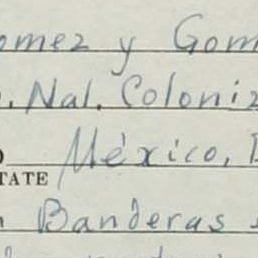 omez y Gom
. Nal. Coloniz
México, D
TATE
Banderas